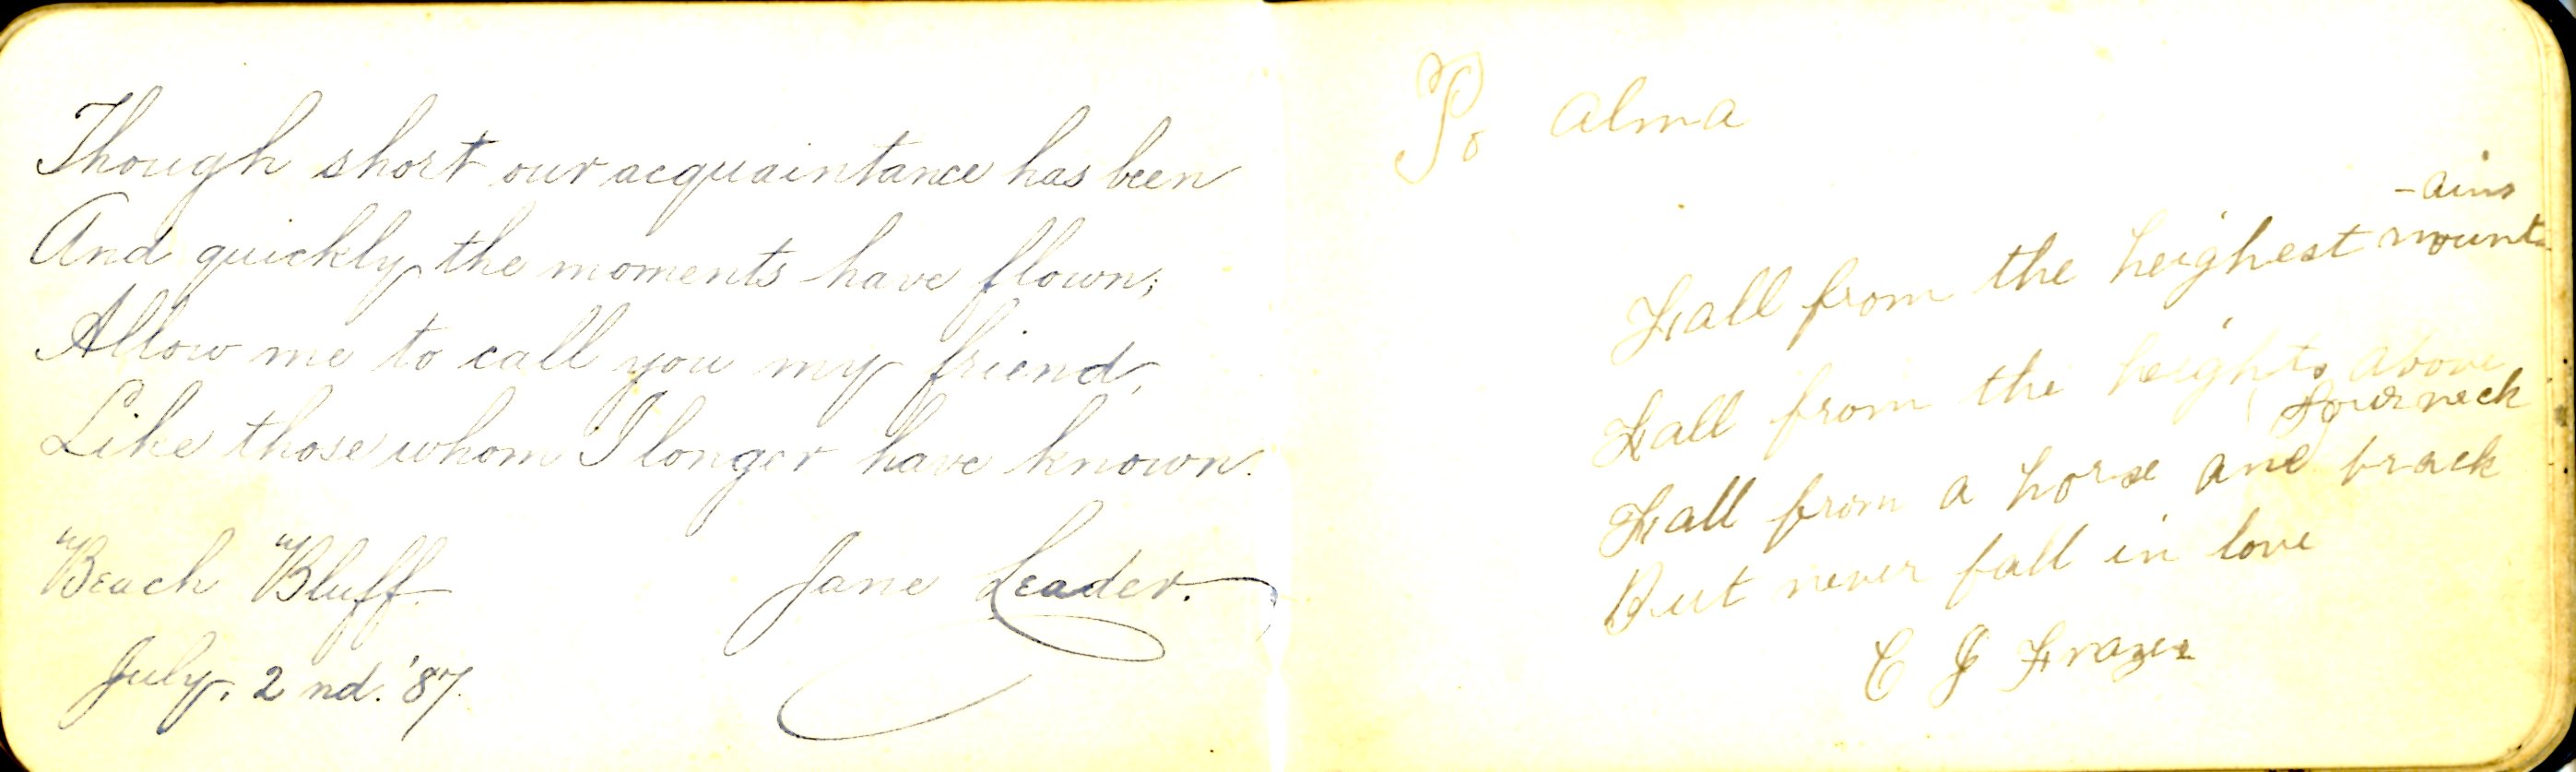 Though short our acquaintance has been
And quickly the moments have flown;
Allow me to call you my friend,
Like those whom I longer have known.
Beach Bluff.
Jane Leader.
July, 2 nd. '87.
To Alma
-ains
Fall from the heighest mount-
Fall from the heights above
your neck
Fall from a horse and brack
But never fall in love
C J Frazer